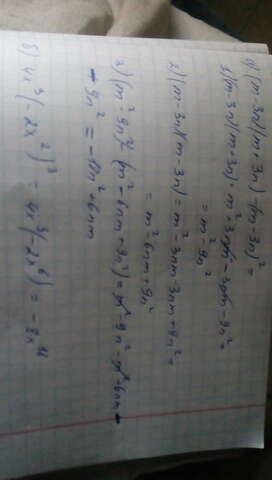 а) (m-3n)(m+3n)-(m-3n)² =
1) (m-3n)(m+3n) = m²+3nm-3nm-9n² =
= m²-9n²
2) (m-3n)(m-3n) = m²-3nm-3nm+9n² =
= m²-6nm+9n²
3) (m²-9n²)-(m²-6nm+9n²) = m²-9n²-m²+6nm-
-9n² = -18n²+6nm
б) 4x³(-2x²)³ = 4x³(-2x⁶) = -8x¹⁸